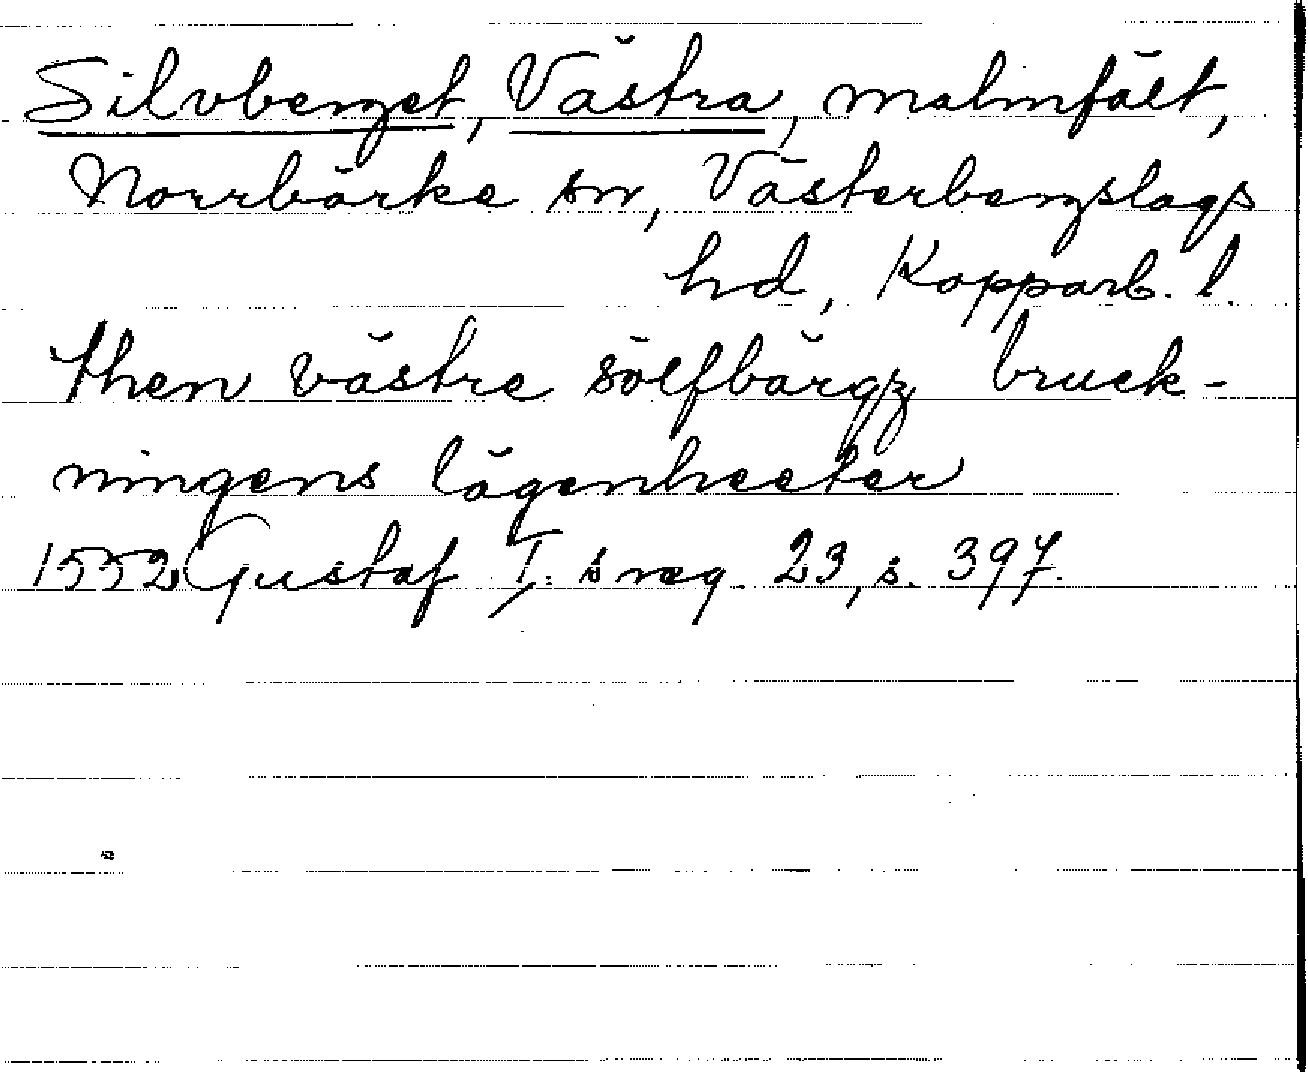 Silvberget, Västra, malmfält,
Norrbärke sn, Västerbergslags
hd, Kopparb. l.
then västre sölfbärgz bruck-
ningens lägenheeter
1552 Gustaf I:s reg. 23, s. 397.